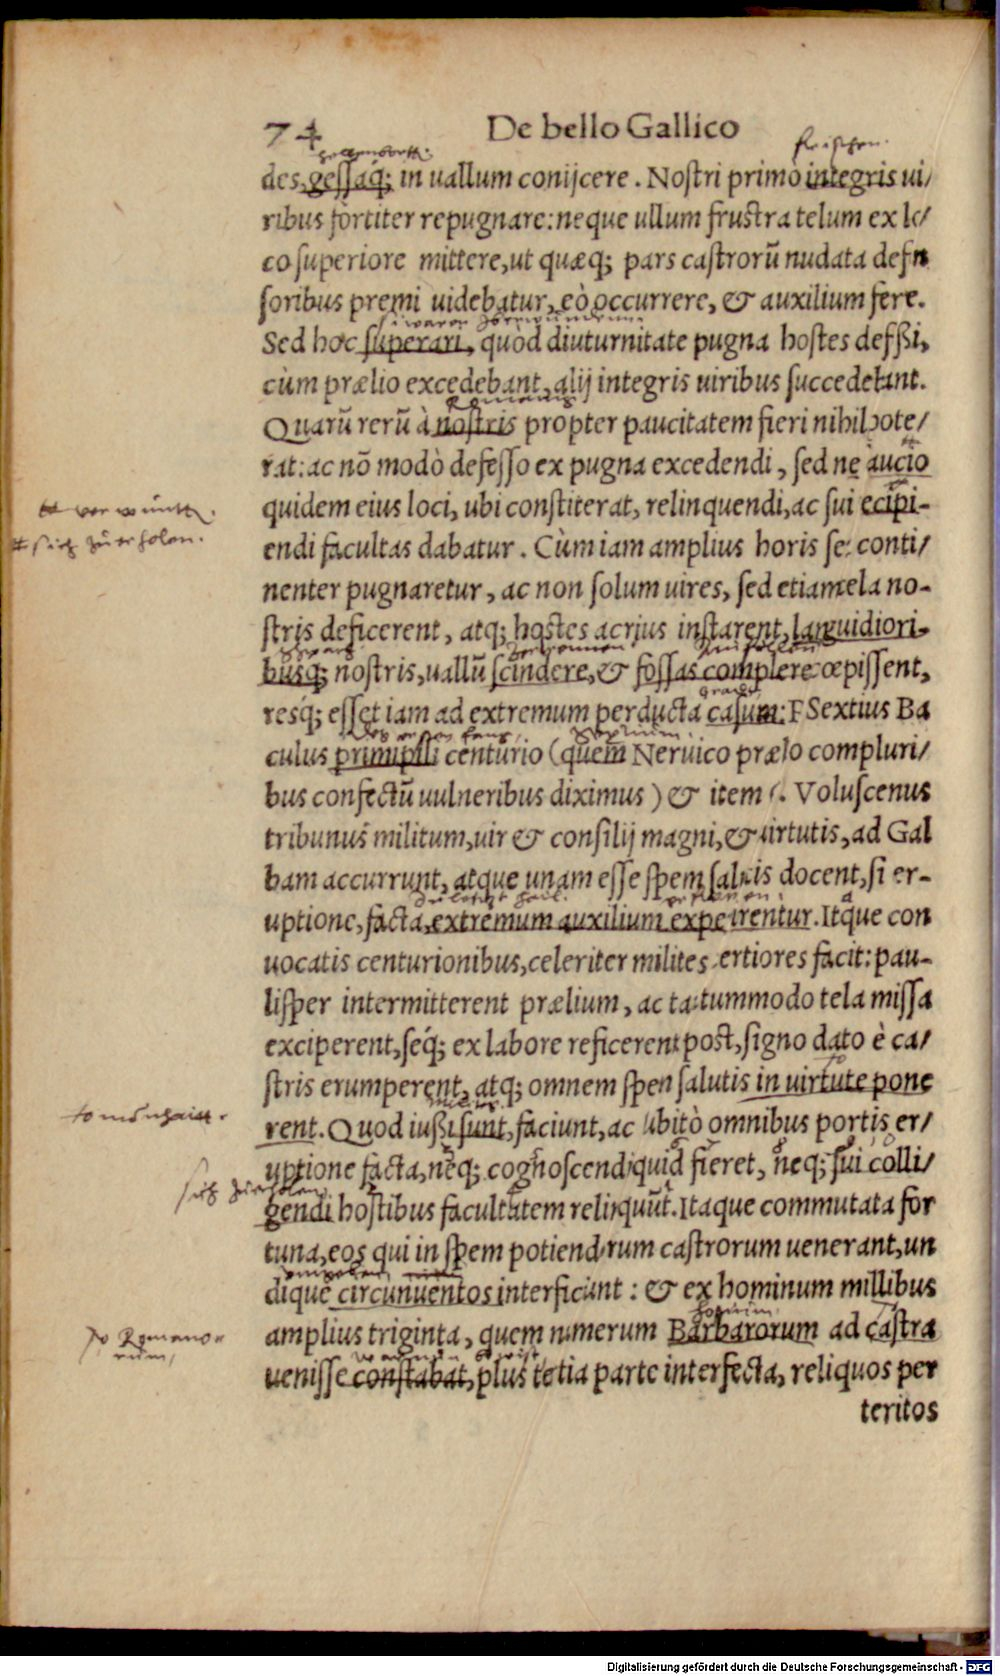 74 De bello Gallico
des, gessaq́; in uallum coniicere. Nostri primo integris ui/
ribus fortiter repugnare: neque ullum frustra telum ex lo/
co superiore mittere, ut quæq; pars castrorũ nudata defn
soribus premi uidebatur, eò occurrere, & auxilium ferre.
Sed hoc superari, quòd diuturnitate pugna hostes defßi,
cùm prælio excedebant, alij integris uiribus succedebant.
Quarũ rerũ à nostris propter paucitatem fieri nihil pote/
rat: ac nõ modò defesso ex pugna excedendi, sed ne aucio
quidem eius loci, ubi constiterat, relinquendi, ac sui ecipi-
endi facultas dabatur. Cùm iam amplius horis se: conti/
nenter pugnaretur, ac non solum uires, sed etiam ela no-
stris deficerent, atq; hostes acrius instarent, languidiori-
busq; nostris, uallũ scindere, & fossas complere cœpissent,
resq; esset iam ad extremum perducta casum: P Sextius Ba
culus primipili centurio (quem Neruico prælo compluri/
bus confectũ uulneribus diximus) & item C. Voluscenus
tribunus militum, uir & consilij magni, & uirtutis, ad Gal
bam accurrunt, atque unam esse spem salutis docent, si er-
uptione, facta, extremum auxilium expeirentur. Itque con
uocatis centurionibus, celeriter milites ertiores facit: pau-
lisper intermitterent prælium, ac ta tummodo tela missa
exciperent, seq́; ex labore reficerent post, signo dato è ca/
stris erumperent, atq; omnem spen salutis in uirtute pone
rent. Quod iußi sunt, faciunt, ac ubitò omnibus portis er/
uptione facta, neq; cognoscendi quid fieret, neq; sui colli/
sich zu erholen
gendi hostibus facultatem relinquũt. Itaque commutata for
tuna, eos qui in spem potiendrum castrorum uenerant, un
dique circunuentos interficiunt: & ex hominum millibus
amplius triginta, quem numerum Barbarorum ad castra
uenisse constabat, plus tetia parte interfecta, reliquos per
teritos
Digitalisierung gefördert durch die Deutsche Forschungsgemeinschaft - DFG